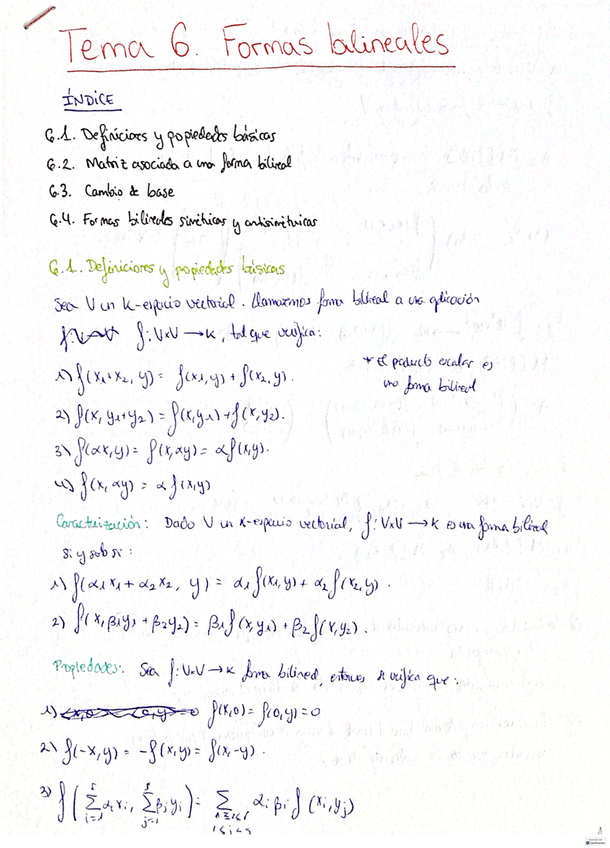 Tema 6. Formas bilineales
ÍNDICE
6.1. Definiciones y propiedades básicas
6.2. Matriz asociada a una forma bilineal
6.3. Cambio de base
6.4. Formas bilineales simétricas y antisimétricas
6.1. Definiciones y propiedades básicas
Sea V un K-espacio vectorial. Llamaremos forma bilineal a una aplicación
f: VxV → K, tal que verifica:
1) f(x₁+x₂, y) = f(x₁,y) + f(x₂,y).
* el producto escalar es
una forma bilineal
2) f(x, y₁+y₂) = f(x,y₁) + f(x,y₂).
3) f(αx,y) = f(x,αy) = αf(x,y).
4) f(x, αy) = α f(x,y)
Caracterización: Dado V un K-espacio vectorial, f: VxV → K es una forma bilineal
si y solo si:
1) f(α₁x₁ + α₂x₂, y) = α₁f(x₁,y) + α₂f(x₂,y).
2) f(x, β₁y₁ + β₂y₂) = β₁f(x,y₁) + β₂f(x,y₂).
Propiedades: Sea f: VxV → K forma bilineal, entonces se verifica que:
1) f(x,0) = f(0,y) = 0
2) f(-x,y) = -f(x,y) = f(x,-y).
3) f(∑ᵢ₌₁ʳ αᵢxᵢ, ∑ⱼ₌₁ˢ βⱼyⱼ) = ∑ αᵢ βⱼ f(xᵢ,yⱼ)
1≤i≤r
1≤j≤s